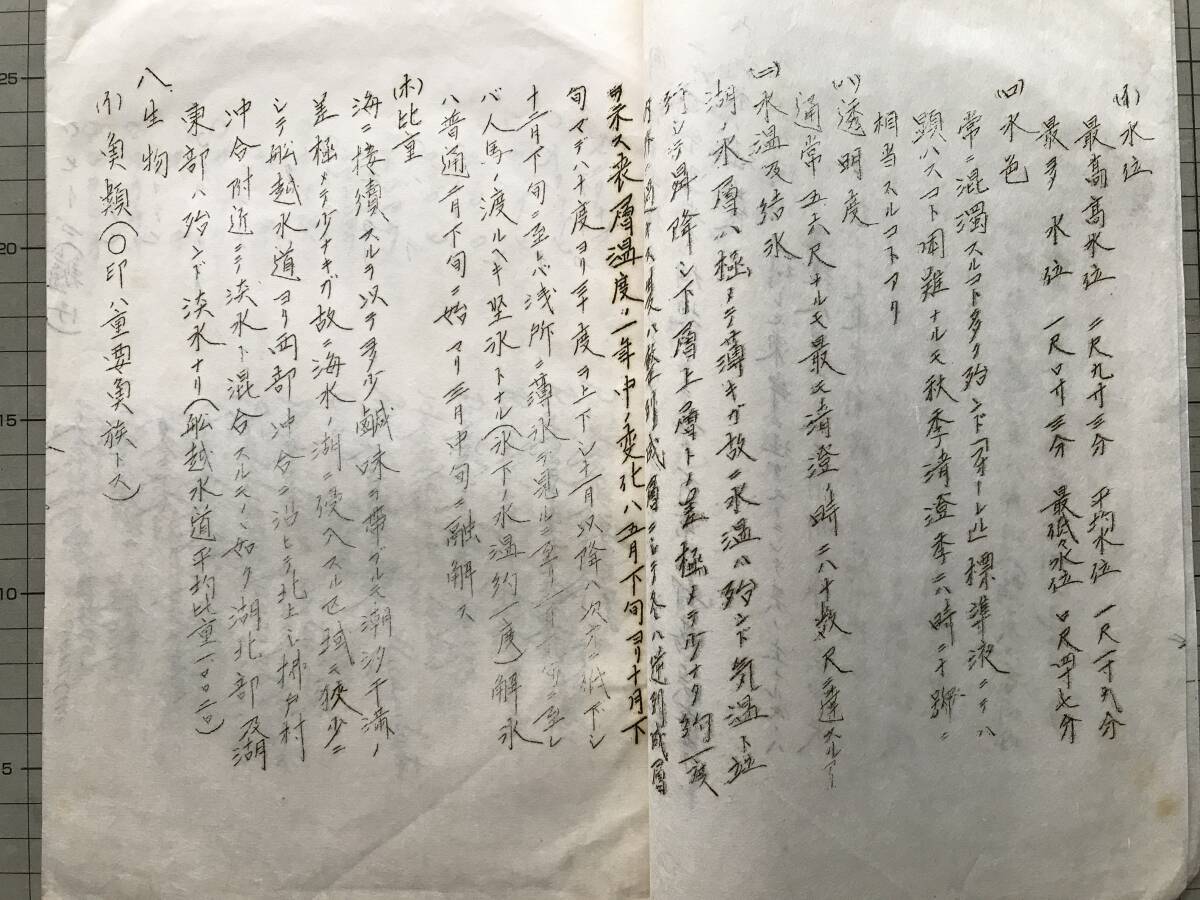 (イ)水位
最高高水位 二尺九寸三分 平均水位 一尺一寸九分
最多水位 一尺〇寸三分 最低水位 〇尺四寸七分
(ロ)水色
常ニ混濁スルコト多ク殆ンド「フォーレル」標準液ニテハ
顕ハスコト困難ナルモ秋季清澄季ニハ時ニ十号ニ
相当スルコトアリ
(ハ)透明度
通常五六尺ナルモ最モ清澄ノ時ニハ十数尺ニ達スル
(ニ)水温及結氷
湖ノ水層ハ極メテ薄キガ故ニ水温ハ殆ンド気温ト並
行シテ昇降シ下層上層トノ差極メテ少ナク約一度
ヲ示ス表層温度ノ一年中ノ変化ハ五月下旬ヨリ十月下
旬マデハ十度ヨリ三十度ヲ上下シ十一月以降ハ次第ニ低下シ
十二月下旬ニ至レバ浅所ニ薄氷ヲ見ルニ至リ一月ニ至レ
バ人馬ノ渡ルヘキ堅氷トナル(氷下ノ水温約一度)解氷
ハ普通二月下旬ニ始マリ三月中旬ニ融解ス
(ホ)比重
海ニ接続スルヲ以テ多少鹹味ヲ帯ブルモ潮汐干満ノ
差極メテ少ナキガ故ニ海水ノ湖ニ侵入スル区域モ狭少ニ
シテ船越水道ヨリ西部沖合ニ沿ヒテ北上シ払戸村
沖合附近ニテ淡水ト混合スルモノヽ如ク湖北部及湖
東部ハ殆ンド淡水ナリ(船越水道平均比重一、〇〇二〇)
八、生物
(イ)魚類(〇印ハ重要魚族トス)